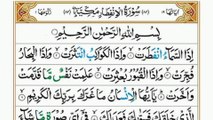 سُوْرَةُ الْاِنْفِطَارِ مَكِّيَّةٌ
بِسْمِ اللهِ الرَّحْمٰنِ الرَّحِيْمِ
اِذَا السَّمَآءُ انْفَطَرَتْ وَاِذَا الْكَوَاكِبُ انْتَثَرَتْ وَاِذَا الْبِحَارُ
فُجِّرَتْ وَاِذَا الْقُبُوْرُ بُعْثِرَتْ عَلِمَتْ نَفْسٌ مَّا قَدَّمَتْ
وَاَخَّرَتْ يٰۤاَيُّهَا الْاِنْسَانُ مَا غَرَّكَ بِرَبِّكَ الْكَرِيْمِ